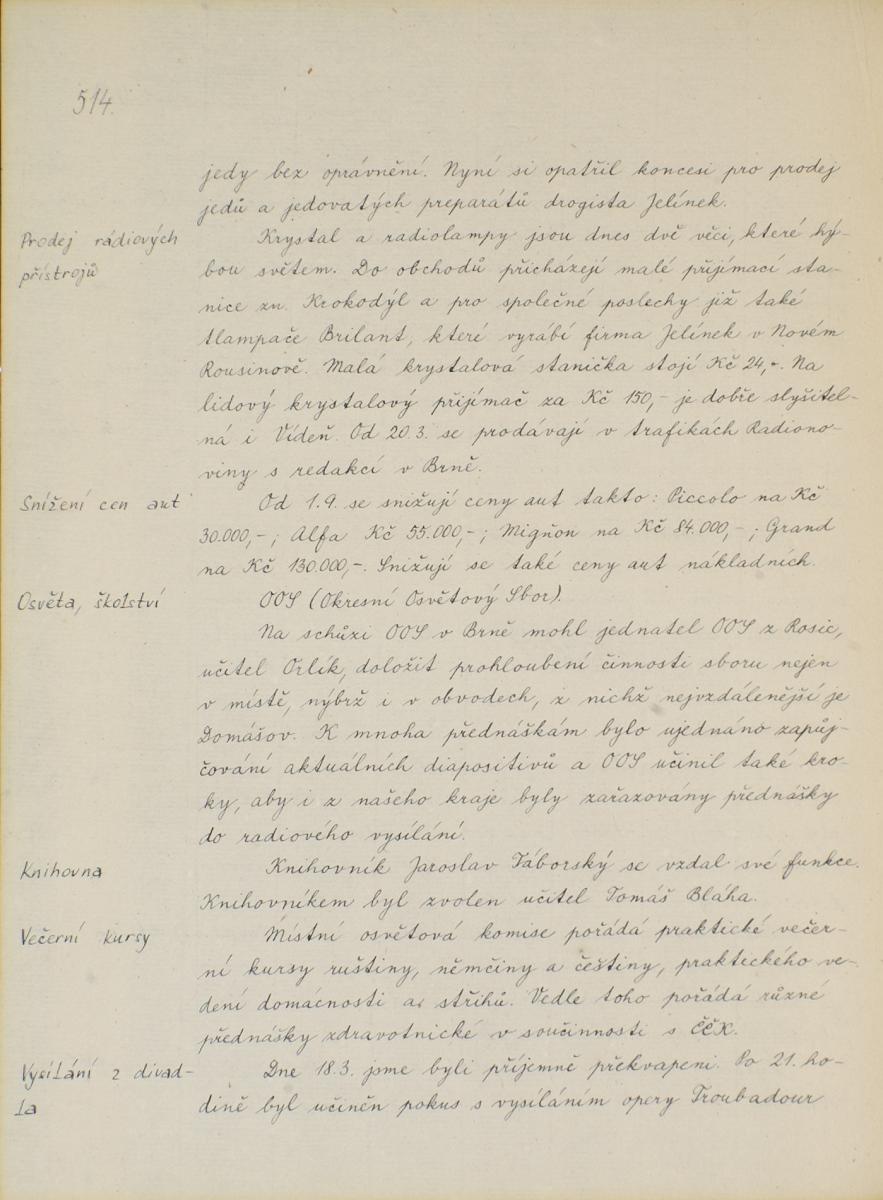 514.
jedy bez oprávnění. Nyní si opatřil koncesi pro prodej
jedů a jedovatých preparátů drogista Jelínek.
Prodej rádiových
přístrojů
Krystal a radiolampy jsou dnes dvě věci, které hý-
bou světem. Do obchodů přicházejí malé přijímací sta-
nice zn. Krokodýl a pro společné poslechy již také
tlampače Brilant, které vyrábí firma Jelínek v Novém
Rousinově. Malá krystalová stanička stojí Kč 24,-. Na
lidový krystalový přijímač za Kč 150,- je dobře slyšitel-
ná i Vídeň. Od 20.3. se prodávají v trafikách Radiono-
viny s redakcí v Brně.
Snížení cen aut
Od 1.9. se snižují ceny aut takto: Piccolo na Kč
30.000,-; Alfa Kč 55.000,-; Migňon na Kč 84.000,-; Grand
na Kč 130.000,-. Snižují se také ceny aut nákladních.
Osvěta, školství
OOS (Okresní Osvětový Sbor).
Na schůzi OOS v Brně mohl jednatel OOS z Rosic,
učitel Orlík, doložit prohloubení činnosti sboru nejen
v místě, nýbrž i v obvodech, z nichž nejvzdálenější je
Domášov. K mnoha přednáškám bylo ujednáno zapůj-
čování aktuálních diapositivů a OOS učinil také kro-
ky, aby i z našeho kraje byly zařazovány přednášky
do radiového vysílání.
Knihovna
Knihovník Jaroslav Táborský se vzdal své funkce.
Knihovníkem byl zvolen učitel Tomáš Bláha.
Večerní kursy
Místní osvětová komise pořádá praktické večer-
ní kursy ruštiny, němčiny a češtiny, praktického ve-
dení domácnosti a střihů. Vedle toho pořádá různé
přednášky zdravotnické v součinnosti s ČČK.
Vysílání z divad-
la
Dne 18.3. jsme byli příjemně překvapeni. Po 21. ho-
dině byl učiněn pokus s vysíláním opery Troubadour